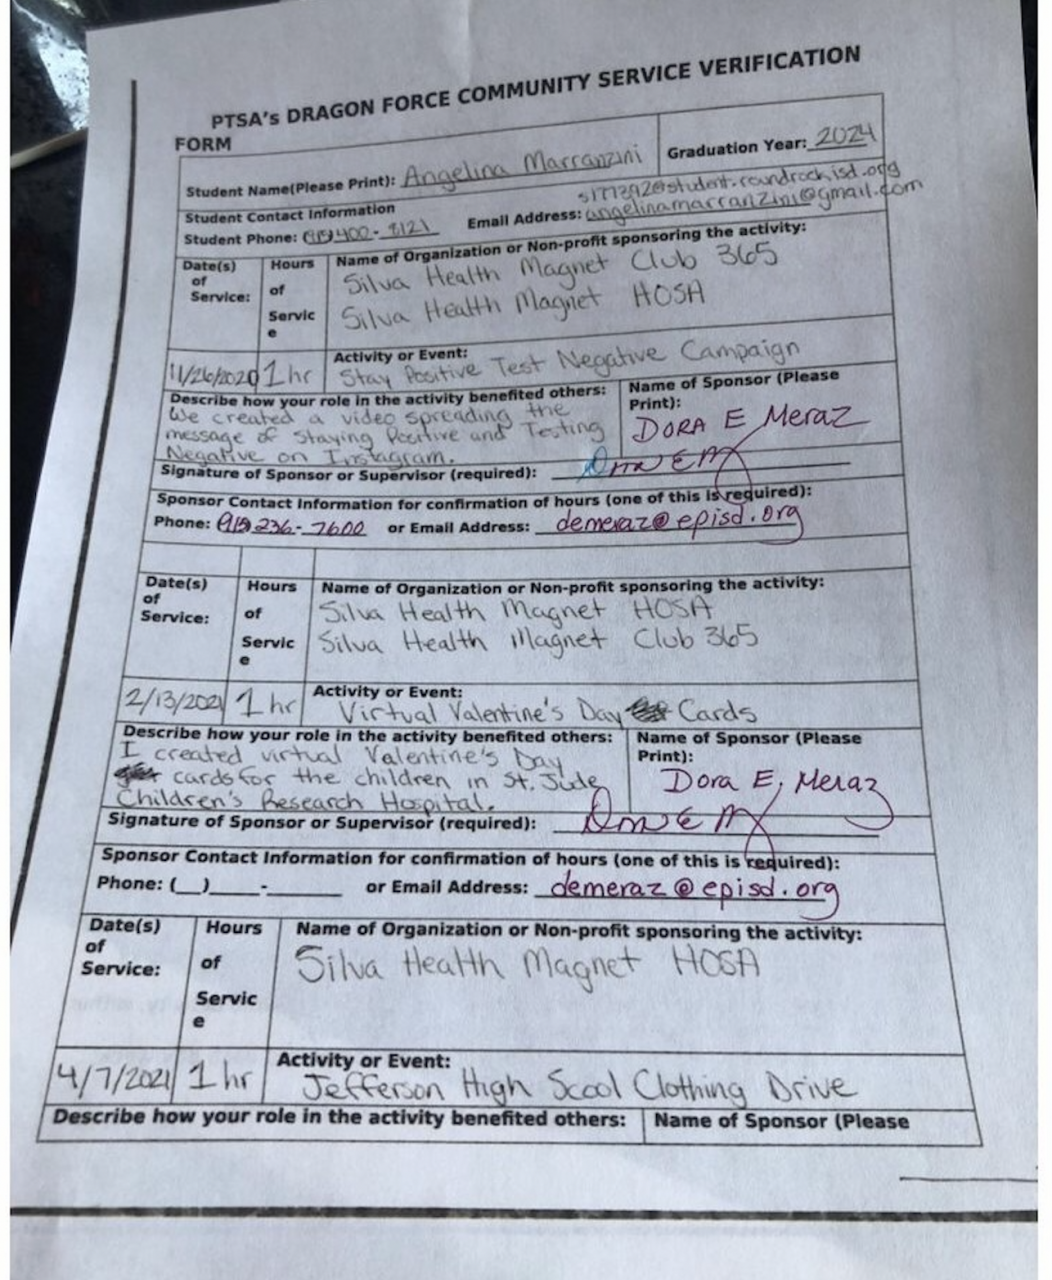 PTSA's DRAGON FORCE COMMUNITY SERVICE VERIFICATION
FORM
Student Name(Please Print): Angelina Marranzini
Graduation Year: 2024
Student Contact Information
Student Phone: (915)400-8121
s177392@student.roundrockisd.org
Email Address: angelinamarranzini@gmail.com
Date(s)
of
Service:
Hours
of
Servic
e
Name of Organization or Non-profit sponsoring the activity:
Silva Health Magnet Club 365
Silva Health Magnet HOSA
11/26/2020
1 hr
Activity or Event:
Stay Positive Test Negative Campaign
Describe how your role in the activity benefited others:
We created a video spreading the
message of Staying Positive and Testing
Negative on Instagram.
Name of Sponsor (Please
Print):
DORA E Meraz
Signature of Sponsor or Supervisor (required):
Sponsor Contact Information for confirmation of hours (one of this is required):
Phone: (915) 236-7600 or Email Address: demeraz@episd.org
Date(s)
of
Service:
Hours
of
Servic
e
Name of Organization or Non-profit sponsoring the activity:
Silva Health Magnet HOSA
Silva Health Magnet Club 365
2/13/2021
1 hr
Activity or Event:
Virtual Valentine's Day Cards
Describe how your role in the activity benefited others:
I created virtual Valentine's Day
cards for the children in St. Jude
Children's Research Hospital.
Name of Sponsor (Please
Print):
Dora E. Meraz
Signature of Sponsor or Supervisor (required):
Sponsor Contact Information for confirmation of hours (one of this is required):
Phone: (__)____-______ or Email Address: demeraz@episd.org
Date(s)
of
Service:
Hours
of
Servic
e
Name of Organization or Non-profit sponsoring the activity:
Silva Health Magnet HOSA
4/7/2021
1 hr
Activity or Event:
Jefferson High Scool Clothing Drive
Describe how your role in the activity benefited others:
Name of Sponsor (Please